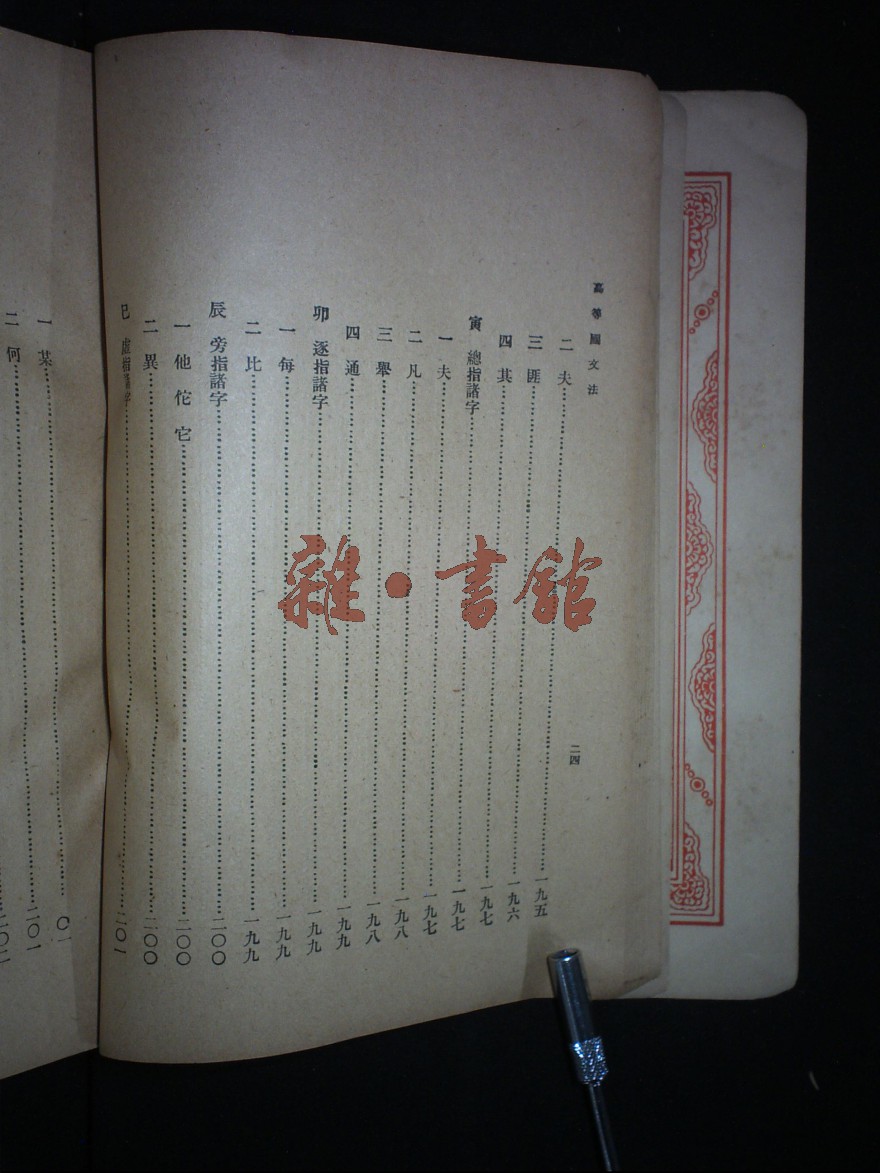 高等國文法 二四
二 夫……一九五
三 匪……一九六
四 其……一九七
寅 總指諸字……一九七
一 夫……一九七
二 凡……一九八
三 舉……一九八
四 通……一九九
卯 逐指諸字……一九九
一 每……一九九
二 比……一九九
辰 旁指諸字……二〇〇
一 他 佗 它……二〇〇
二 異……二〇〇
巳 虛指諸字……二〇一
一 某……〇一
二 何……二〇一
二〇二
雜·書館